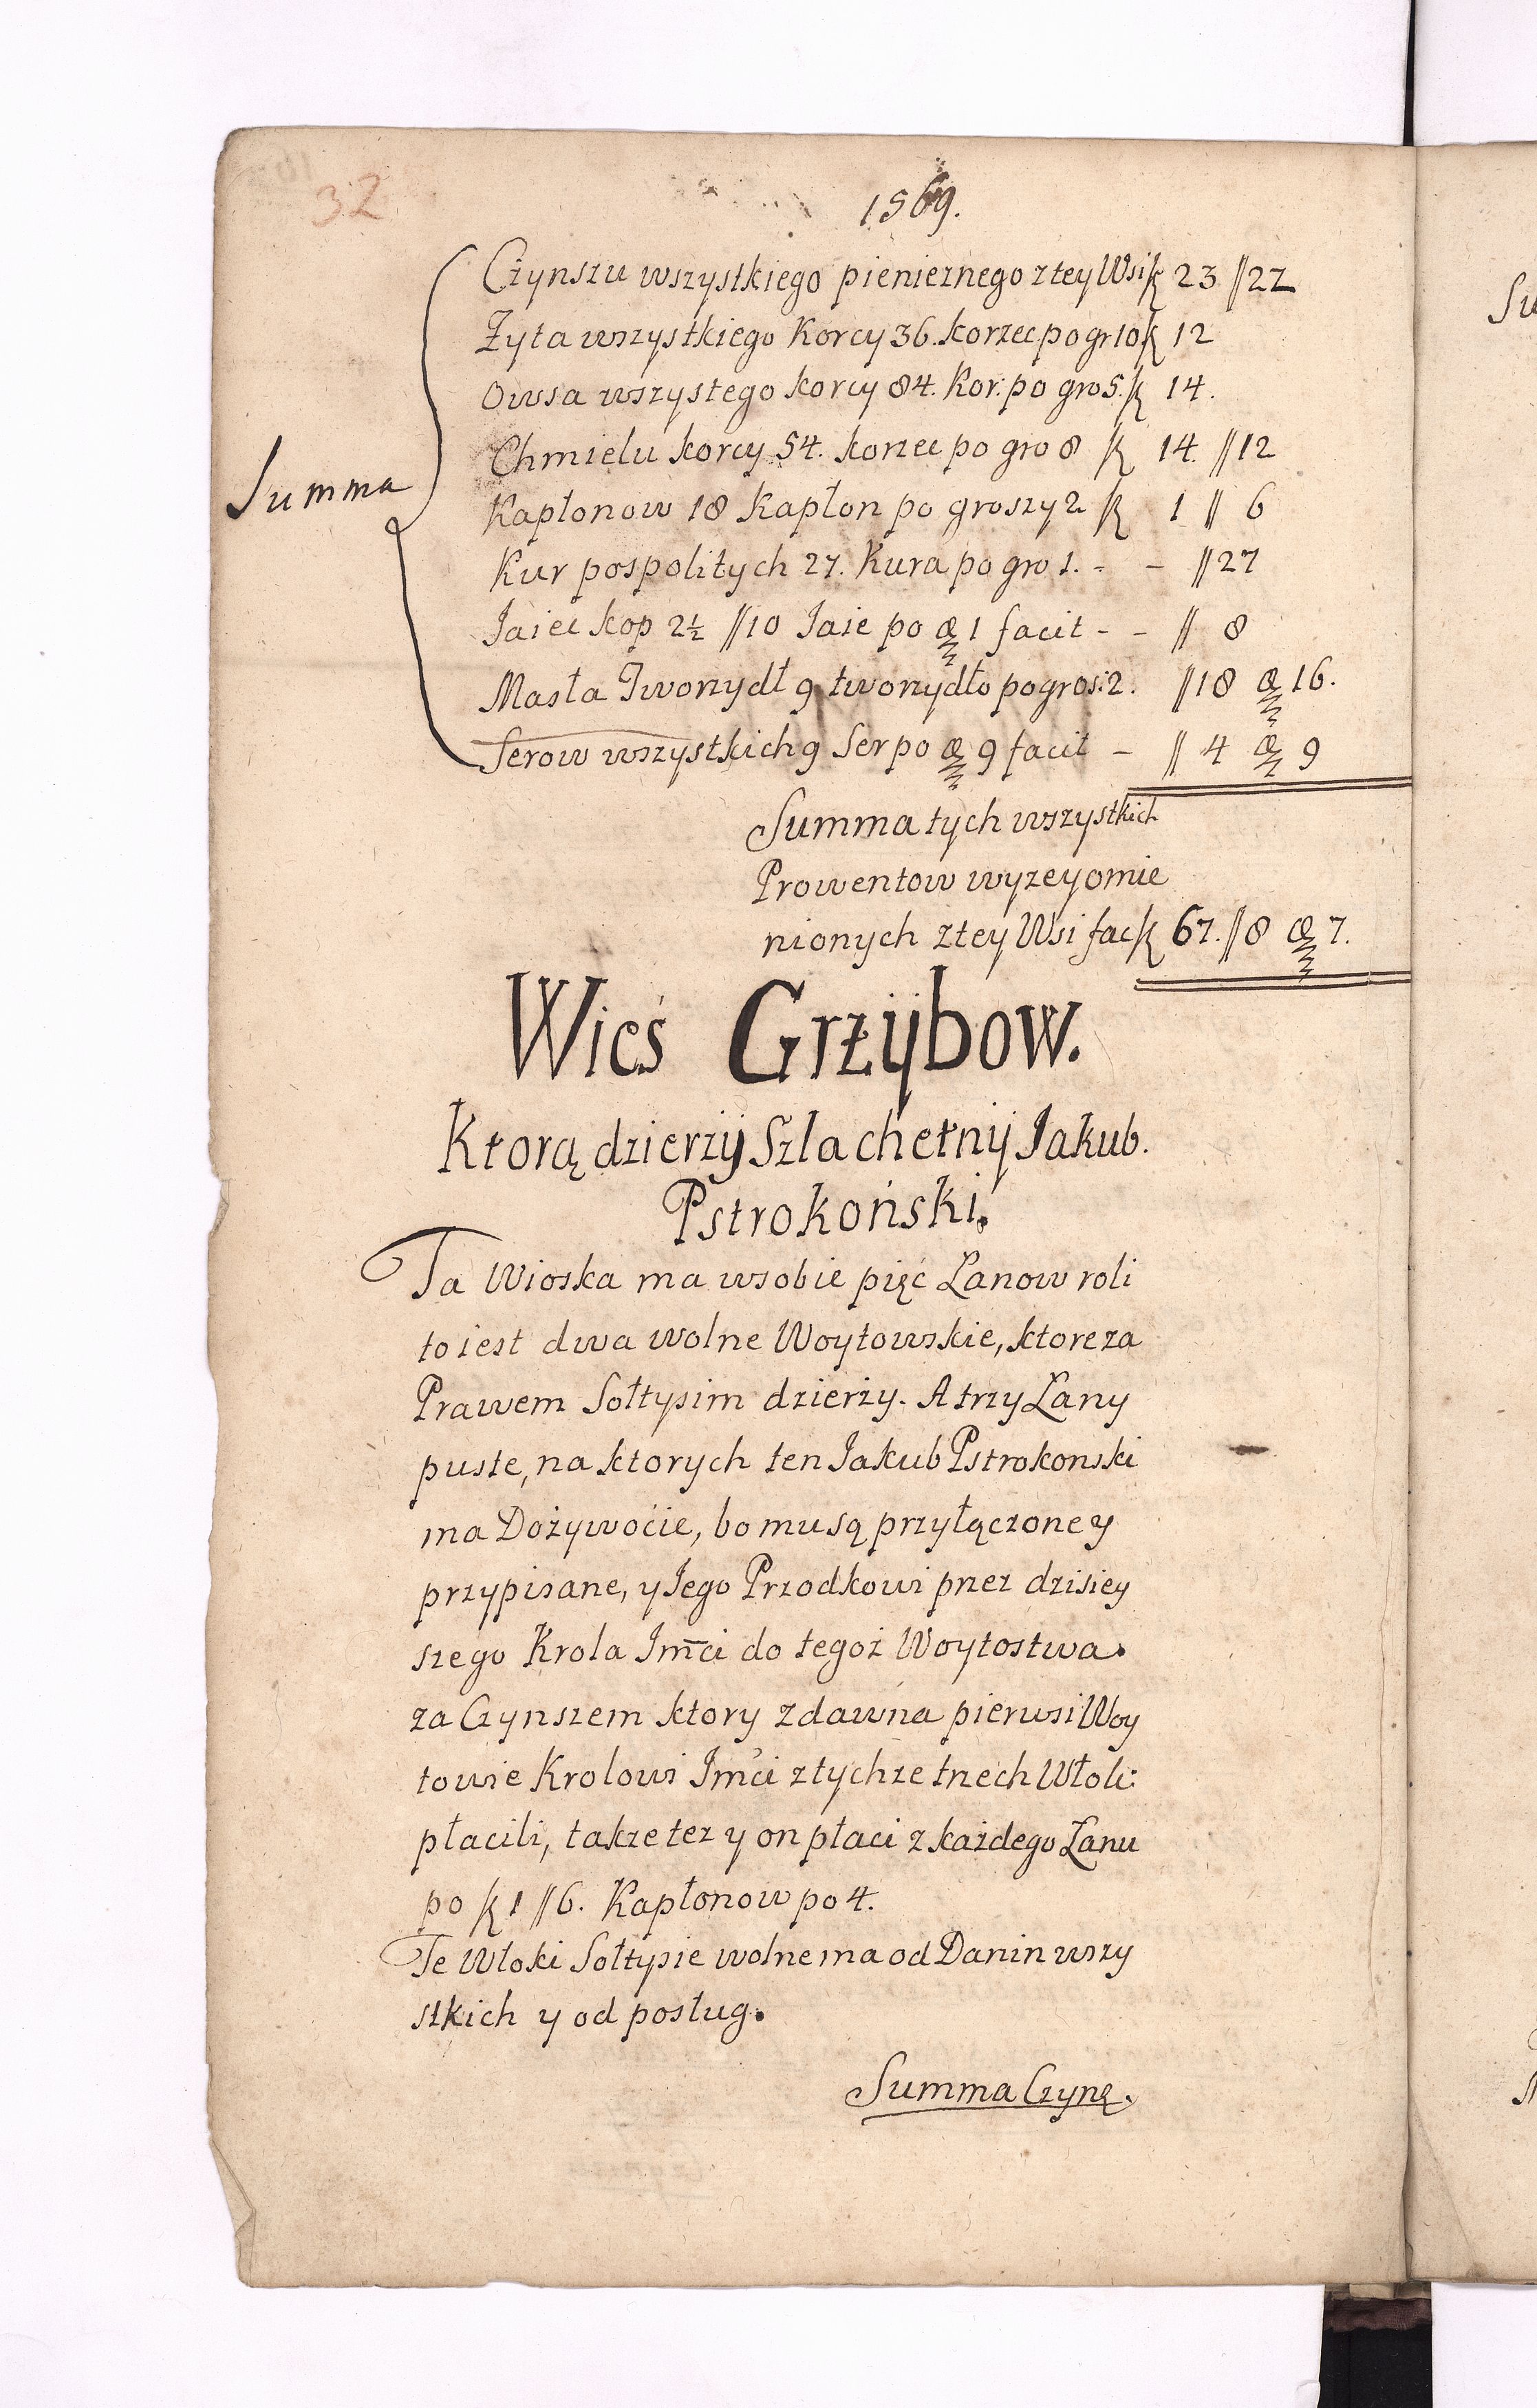 32
1569.
Czynszu wszystkiego pienieznego z tey Wsi ƙ 23 //22
Zyta wszystkiego Korcy 36. korzec po gr 10 ƙ 12
Owsa wszystego korcy 84. Kor: po gro 5. ƙ 14.
Chmielu korcy 54. korzec po gro 8 ƙ 14 //12
Summa
Kapłonow 18 Kapłon po groszy 2 ƙ 1 // 6
Kur pospolitych 27. Kura po gro 1. - - //27
Jaiec kop 2½ //10 Jaie po 1 facit - - // 8
Masła Tworzydł 9 tworzydło po gros: 2. //18 16.
Serow wszystkich 9 Ser po 9 facit - // 4 9
Summa tych wszystkich
Prowentow wyzey omie
nionych z tey Wsi fac ƙ 67. //8 7.
Wieś Grzÿbow.
Ktorą dzierzÿ Szlachetnÿ Jakub.
Pstrokoński.
Ta Wioska ma w sobie pięć Łanow roli
to iest dwa wolne Woytowskie, ktore za
Prawem Sołtysim dzierży. A trzy Łany
puste, na ktorych ten Jakub Pstrokonski
ma Dożywoćie, bo mu są przyłączone y
przypisane, y Jego Przodkowi przez dzisiey
szego Krola Jm̄ci do tegoż Woytostwa.
za Czynszem ktory zdawna pierwsi Woy
towie Krolowi Jm̄ci z tychze trzech Włok:
płacili, takze tez y on płaci z każdego Łanu
po ƙ 1 //6. Kapłonow po 4.
Te Włoki Sołtysie wolne ma od Danin wszy
stkich y od posług.
Summa Czynę.